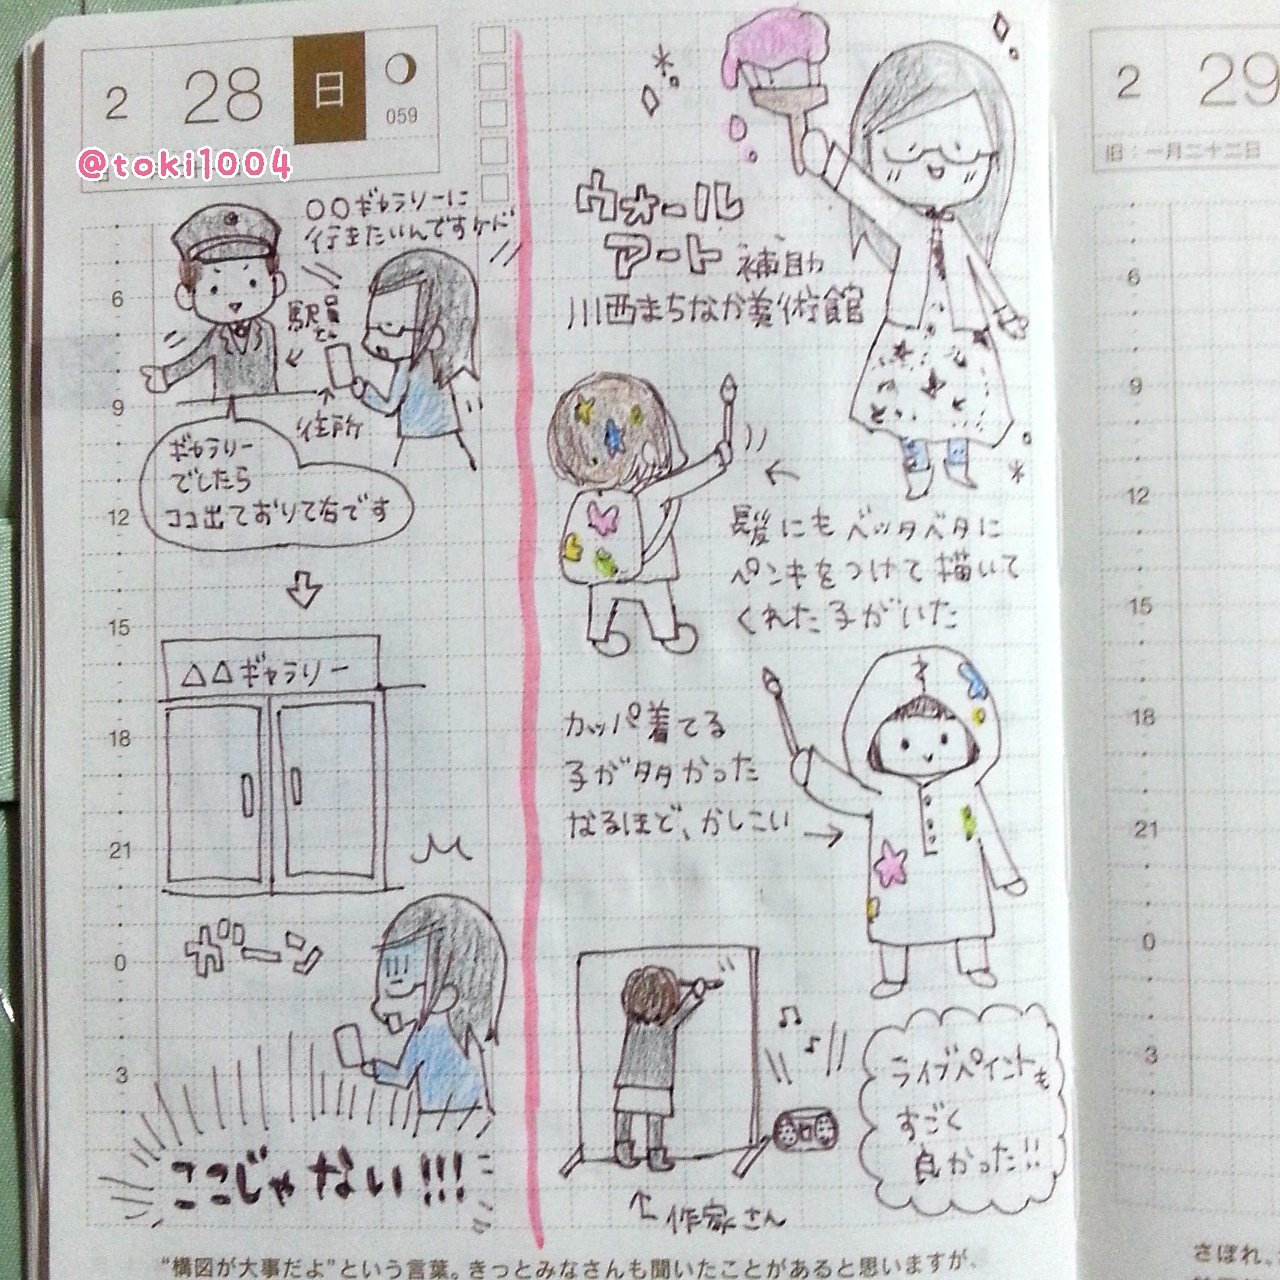 2 28 日
059
@toki1004
○○ギャラリーに
行きたいんですケド
駅員
さん
住所
ギャラリー
でしたら
ココ出ておりて右です
△△ギャラリー
ガーン
ここじゃない!!!
6
9
12
15
18
21
0
3
ウォール
アート 補助
川西まちなか美術館
髪にもベッタベタに
ペンキをつけて描いて
くれた子がいた
カッパ着てる
子が多かった
なるほど、かしこい
ライブペイントも
すごく
良かった!!
作家さん
"構図が大事だよ"という言葉。きっとみなさんも聞いたことがあると思いますが、
2 29
旧:一月二十二日
6
9
12
15
18
21
0
3
さぼれ、